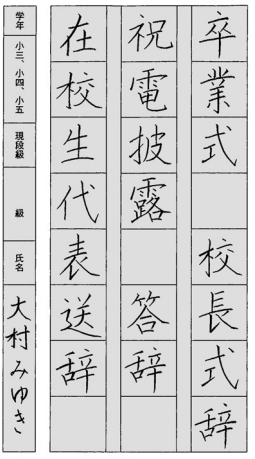 卒業式 校長式辞
祝電披露 答辞
在校生代表送辞
学年 小三、小四、小五 現段級 級 氏名 大村みゆき